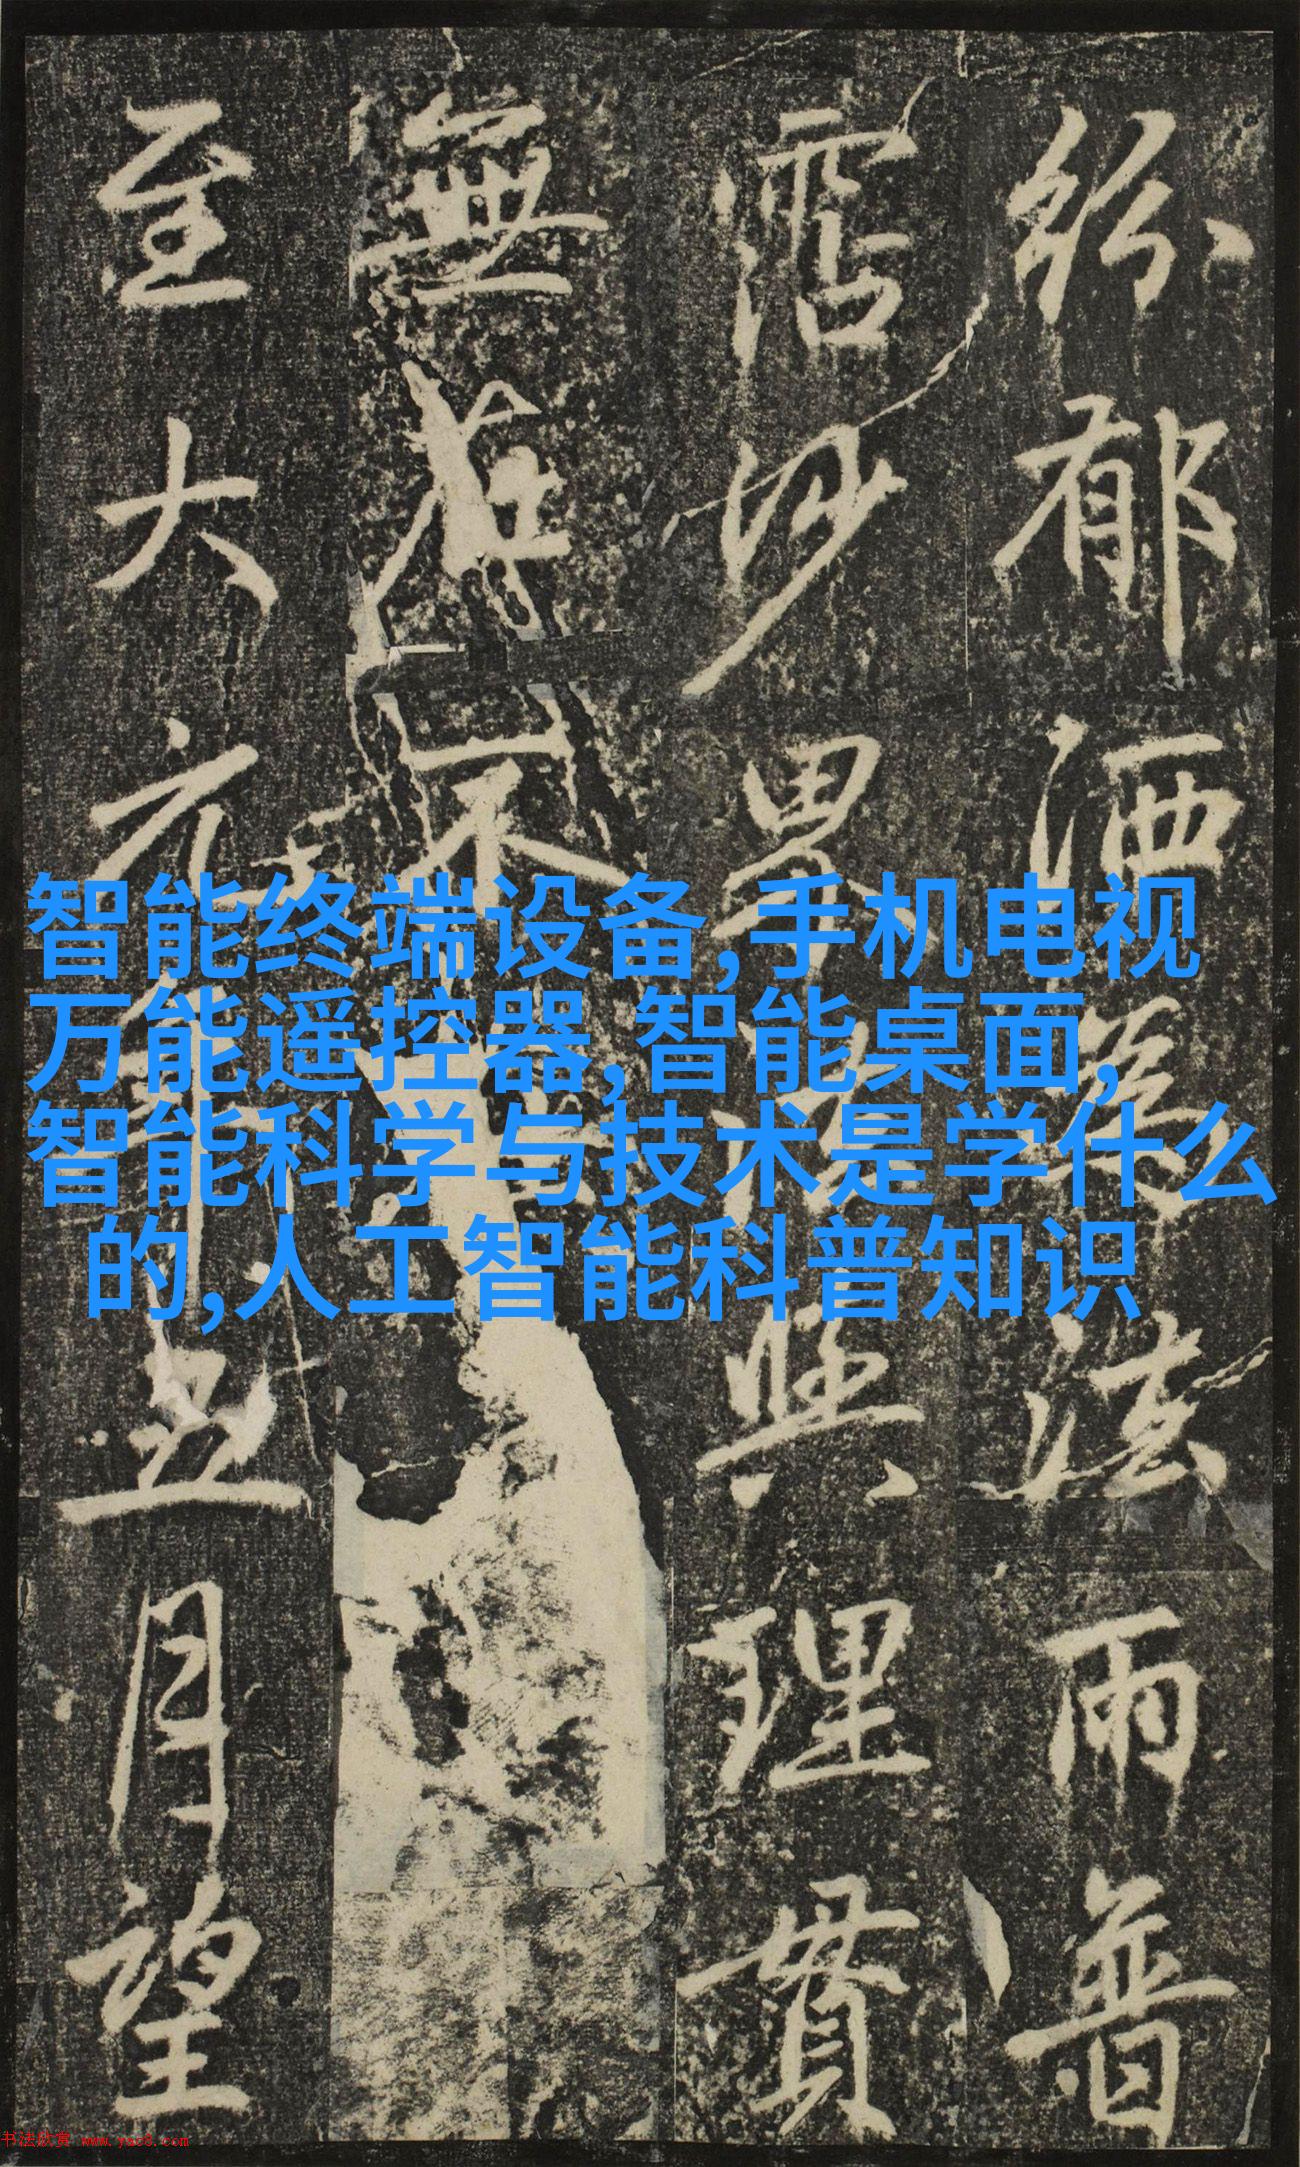 紛郁洒法雨普
霑沙界與理貫
無在不
至大元年五月望
智能终端设备,手机电视
万能遥控器,智能桌面,
智能科学与技术是学什么
的,人工智能科普知识
书法欣赏 www.yac8.com